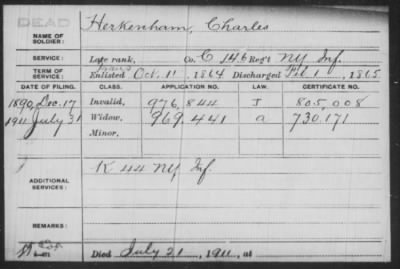 DEAD
NAME OF SOLDIER: Herkenham, Charles
SERVICE: Late rank, Co. C 146 Reg't NY Inf.
TERM OF SERVICE: Enlisted Oct. 11, 1864 Discharged Feb 1, 1865
DATE OF FILING. CLASS. APPLICATION NO. LAW. CERTIFICATE NO.
1890, Dec. 17 Invalid, 976,844 J 805,008
1911 July 31 Widow, 969,441 a 730,171
Minor,
ADDITIONAL SERVICES: K 44 NY, Inf.
REMARKS:
Died July 21, 1911, at